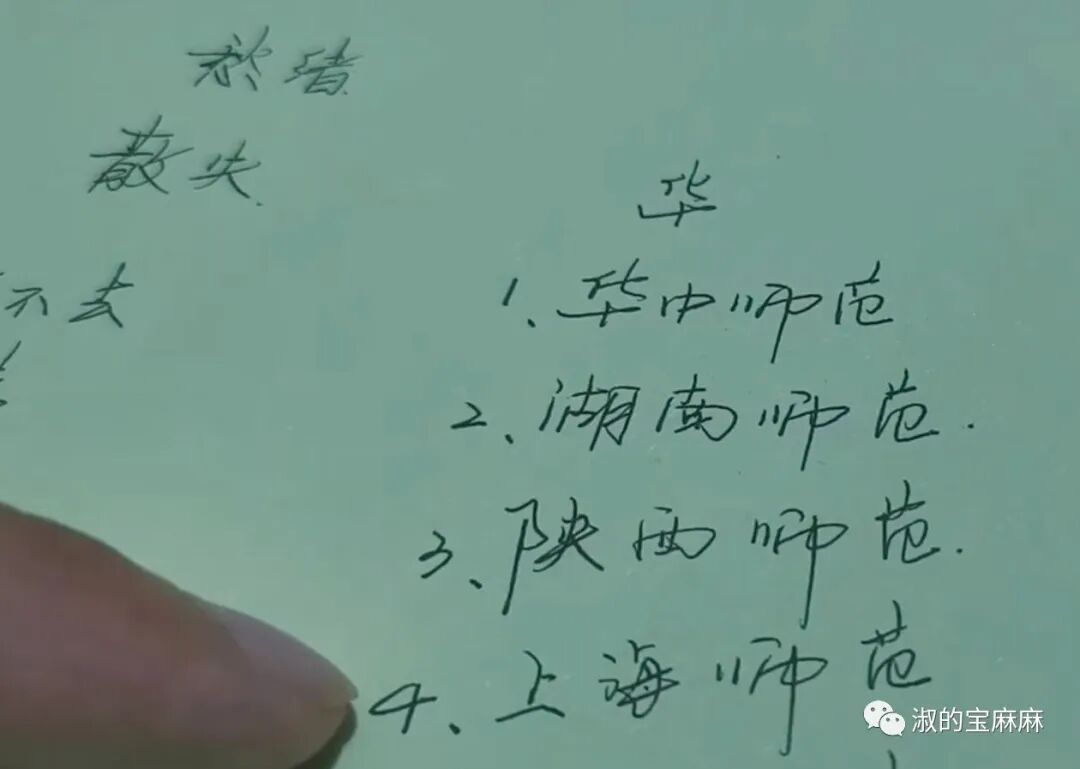 散失
不去
华
1、华中师范
2、湖南师范.
3、陕西师范.
4、上海师范
淑的宝麻麻